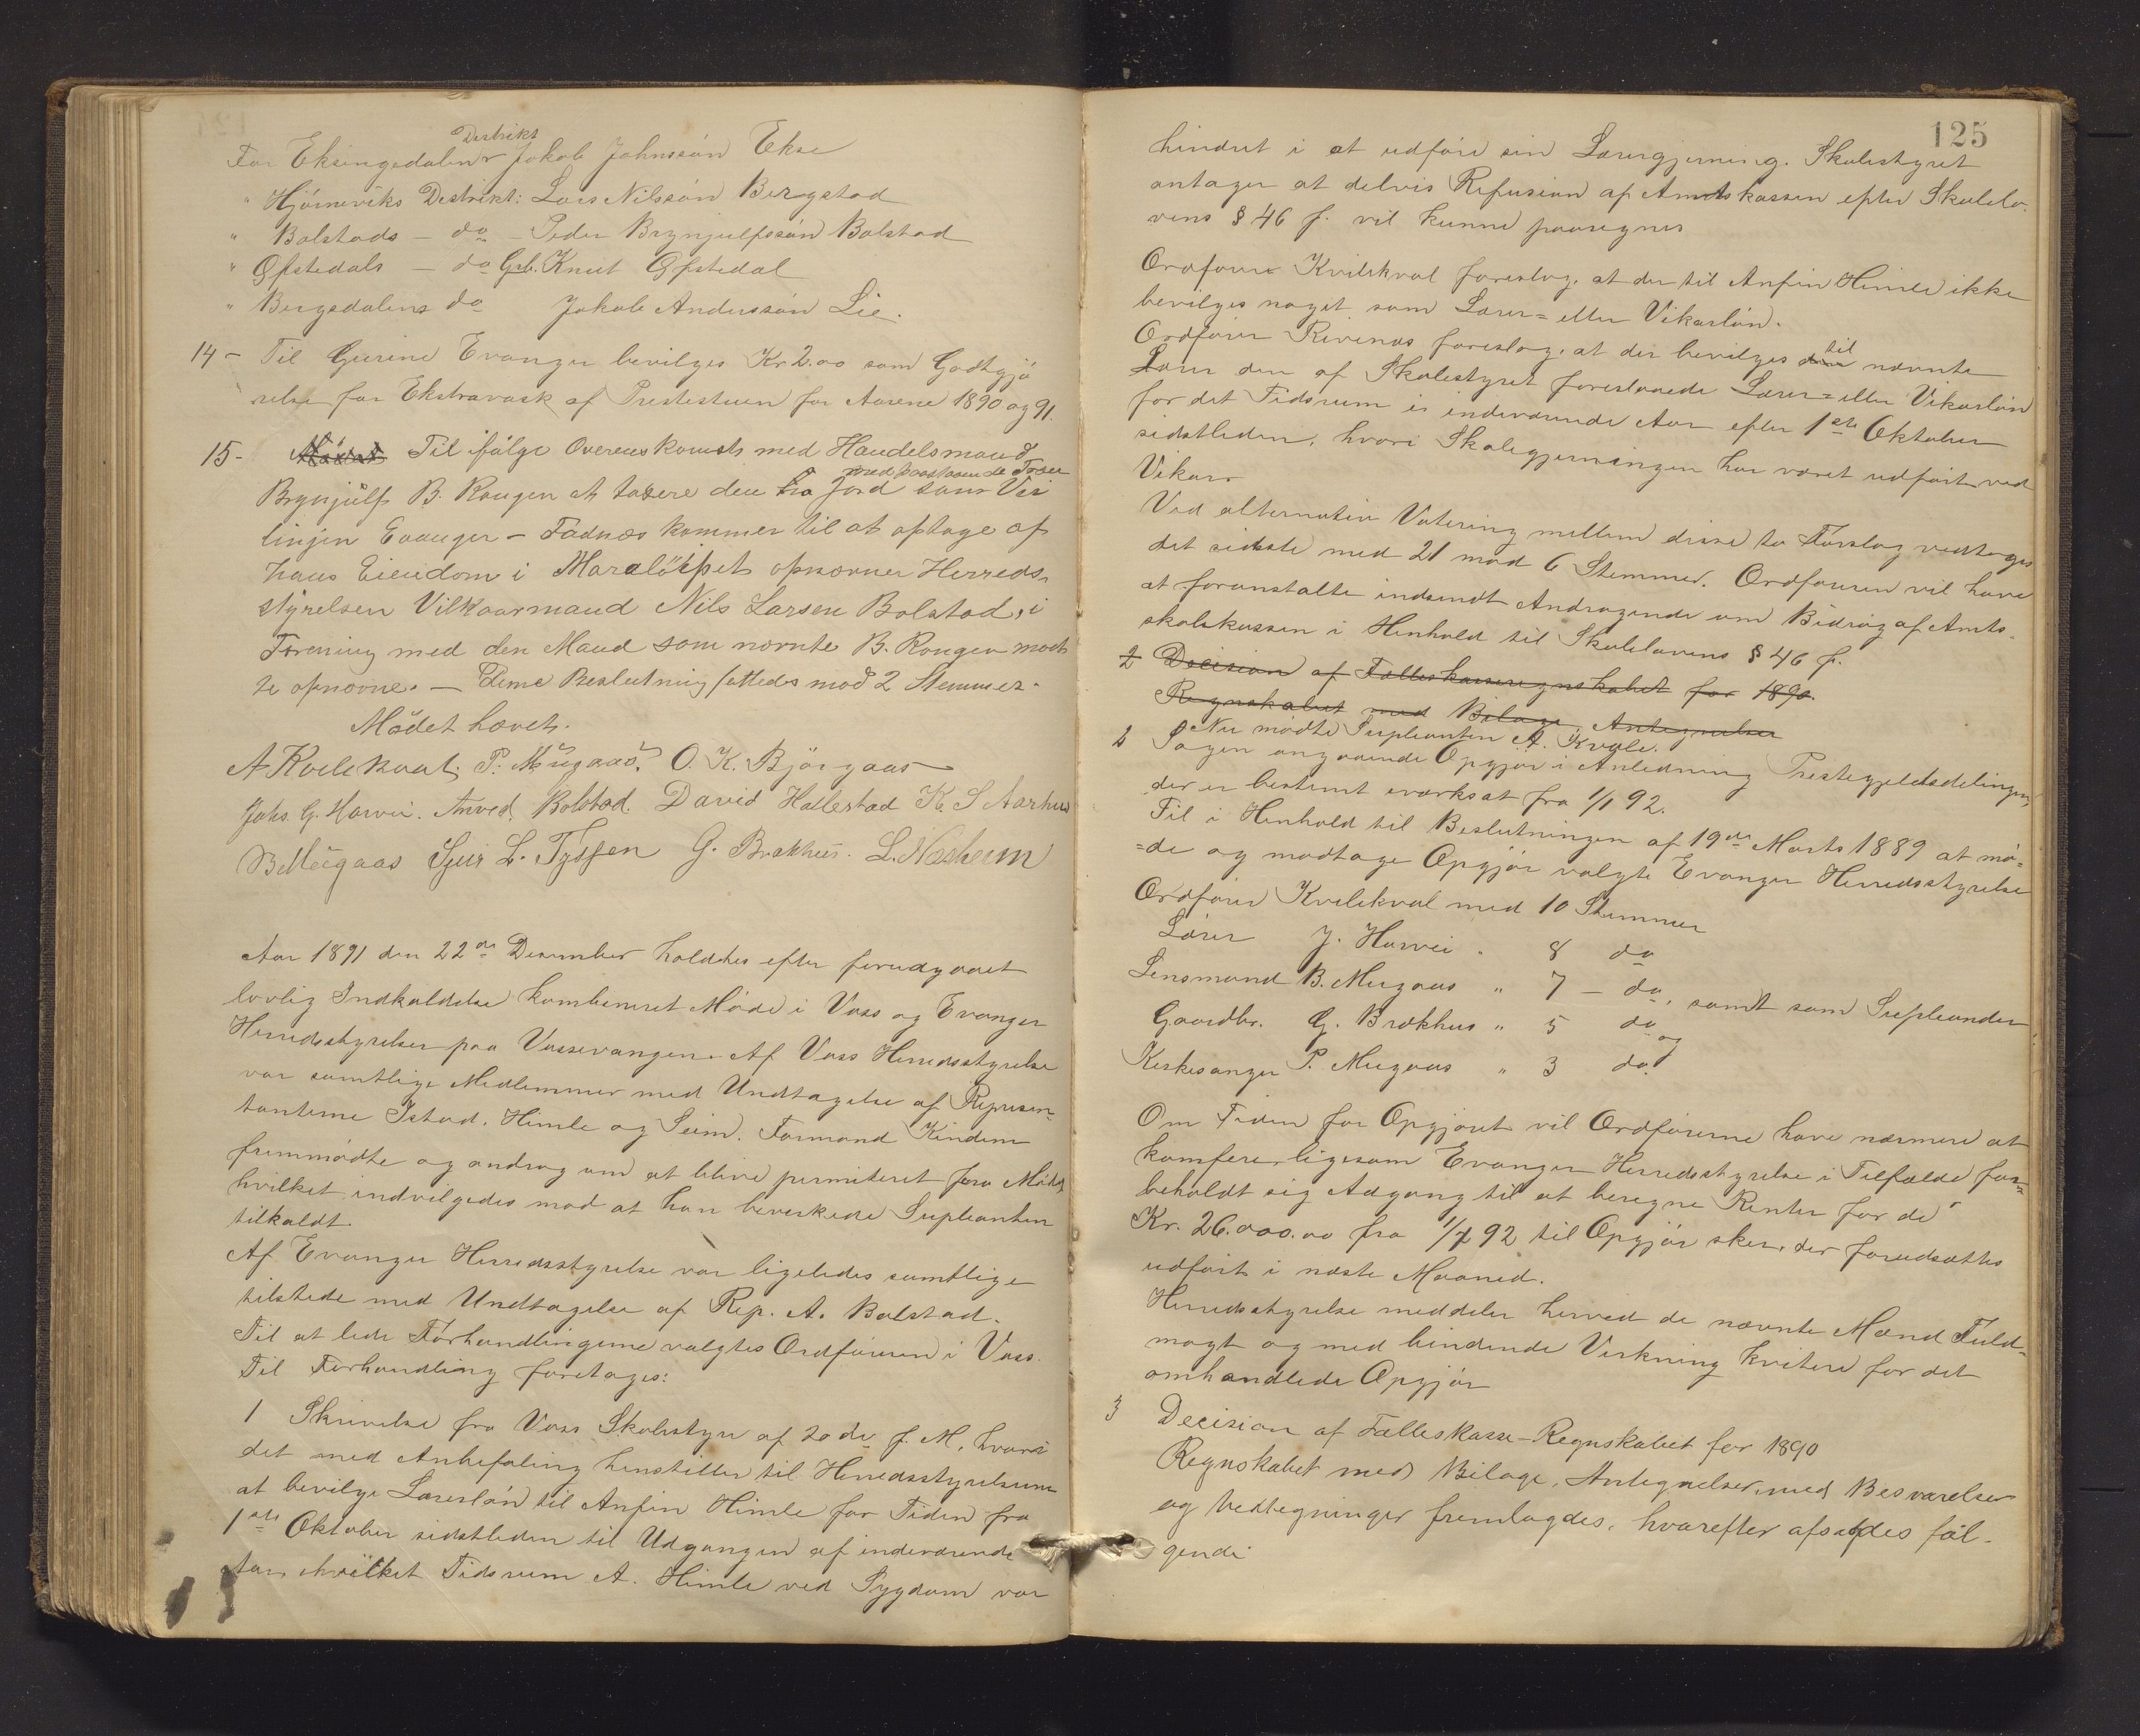 Distrikt
For Eksingedalens Jakob Johnssön Ekse
" Hjörneviks Distrikt: Lars Nilssön Bergstad
" Bolstads – do – Peder Brynjulfssön Bolstad
" Øfstedals – do Grb. Knut Øfstedal
" Bergsdalens do Jakob Anderssön Lie.
14 – Til Gurine Evanger bevilges Kr 2.00 som Godtgjö
relse for Ekstravask af Prestestuen for Aarene 1890 og 91.
15 – Mödet Til ifölge Overenskomst med Handelsmand
med paastaaende Træer
Brynjülf B. Rongen at taxere den fra Jord som Vei
linjen Evanger – Fadnæs kommer til at optage af
hans Eiendom i Maralöipet opnævner Herreds-
styrelsen Vilkaarmand Nils Larsen Bolstad, i
Forening med den Mand som nævnte B. Rongen maat
te opnævne. – Denne Beslutning fattedes mod 2 Stemmer.
Mödet hævet.
A Kvilekval. P. Mügaas. O. K. Björgaas
Johs. G. Horvei. Anved Bolstad. David Hallestad K. S Aarhus
B Mügaas Sjur L. Tyssen G. Brækhus. L. Næsheim
Aar 1891 den 22de December holdtes efter forudgaaet
lovlig Indkaldelse kombineret Möde i Voss og Evanger
Herredsstyrelser paa Vossevangen. Af Voss Herredsstyrelse
var samtlige Medlemmer med Undtagelse af Repræsen-
tanterne Istad, Himle og Seim. Formand Kindem
fremmödte og androg om at blive permiteret fra Mödet,
hvilket indvilgedes mod at han bevirkede Supleanten
tilkaldt.
Af Evanger Herredsstyrelse var ligeledes samtlige
tilstede med Undtagelse af Rep. A. Bolstad.
Til at lede Forhandlingerne valgtes Ordföreren i Voss.
Til Forhandling foretages:
1 Skrivelse fra Voss Skolestyre af 20de f. M., hvori
det med Anbefaling henstiller til Herredsstyrelserne
at bevilge Lærerlön til Anfin Himle for Tiden fra
1ste Oktober sidstleden til Udgangen af indeværende
Aar, i hvilket Tidsrum A. Himle ved Sygdom var
125
hindret i at udföre sin Lærergjerning. Skolestyret
antager at delvis Refusion af Amtskassen efter Skolelo-
vens § 46 f. vil kunne paaregnes
Ordförer Kvilekval foreslog, at der til Anfin Himle ikke
bevilges noget som Lærer= eller Vikarlön.
Ordförer Revenæs foreslog, at der bevilges den til nævnte
Lærer den af Skolestyret foreslaaede Lærer= eller Vikarlön
for det Tidsrum i indeværende Aar efter 1ste Oktober
sidstleden, hvori Skolegjerningen har været udfört ved
Vikar.
Ved alternativ Votering mellem disse to Forslag vedtoges
det sidste med 21 mod 6 Stemmer. Ordföreren vil have
at foranstalte indsendt Andragende om Bidrag af Amts-
skolekassen i Henhold til Skolelovens § 46 f.
2 Decision af Fælleskasseregnskabet for 1890.
Regnskabet med Bilage, Antegnelser
Nu mödte Supleanten A. Kvale.
2 Sagen angaaende Opgjör i Anledning Prestegjeldsdelingen,
der er bestemt iværksat fra 1/1 92.
Til i Henhold til Beslutningen af 19de Marts 1889 at mö-
=de og modtage Opgjör valgte Evanger Herredsstyrelse
Ordförer Kvilekval med 10 Stemmer
Lærer J. Horvei " 8 do
Lensmand B. Mugaas " 7 – do, samt som Supleanter
Gaardbr. G. Brækhus " 5 do og
Kirkesanger P. Mugaas " 3 do.
Om Tiden for Opgjöret vil Ordförerne have nærmere at
konferere, ligesom Evanger Herredsstyrelse i Tilfælde for-
beholdt sig Adgang til at beregne Renter for de
Kr. 26.000.00 fra 1/1 92 til Opgjör sker, der forudsættes
udfört i næste Maaned.
Herredsstyrelse meddeler herved de nævnte Mænd Fuld-
magt og med bindende Virkning kvitere for det
omhandlede Opgjör
3 Decision af Fælleskasse-Regnskabet for 1890
Regnskabet med Bilage, Antegnelser, med Besvarelser
og Vedtegninger fremlagdes, hvorefter afsagdes föl-
gende